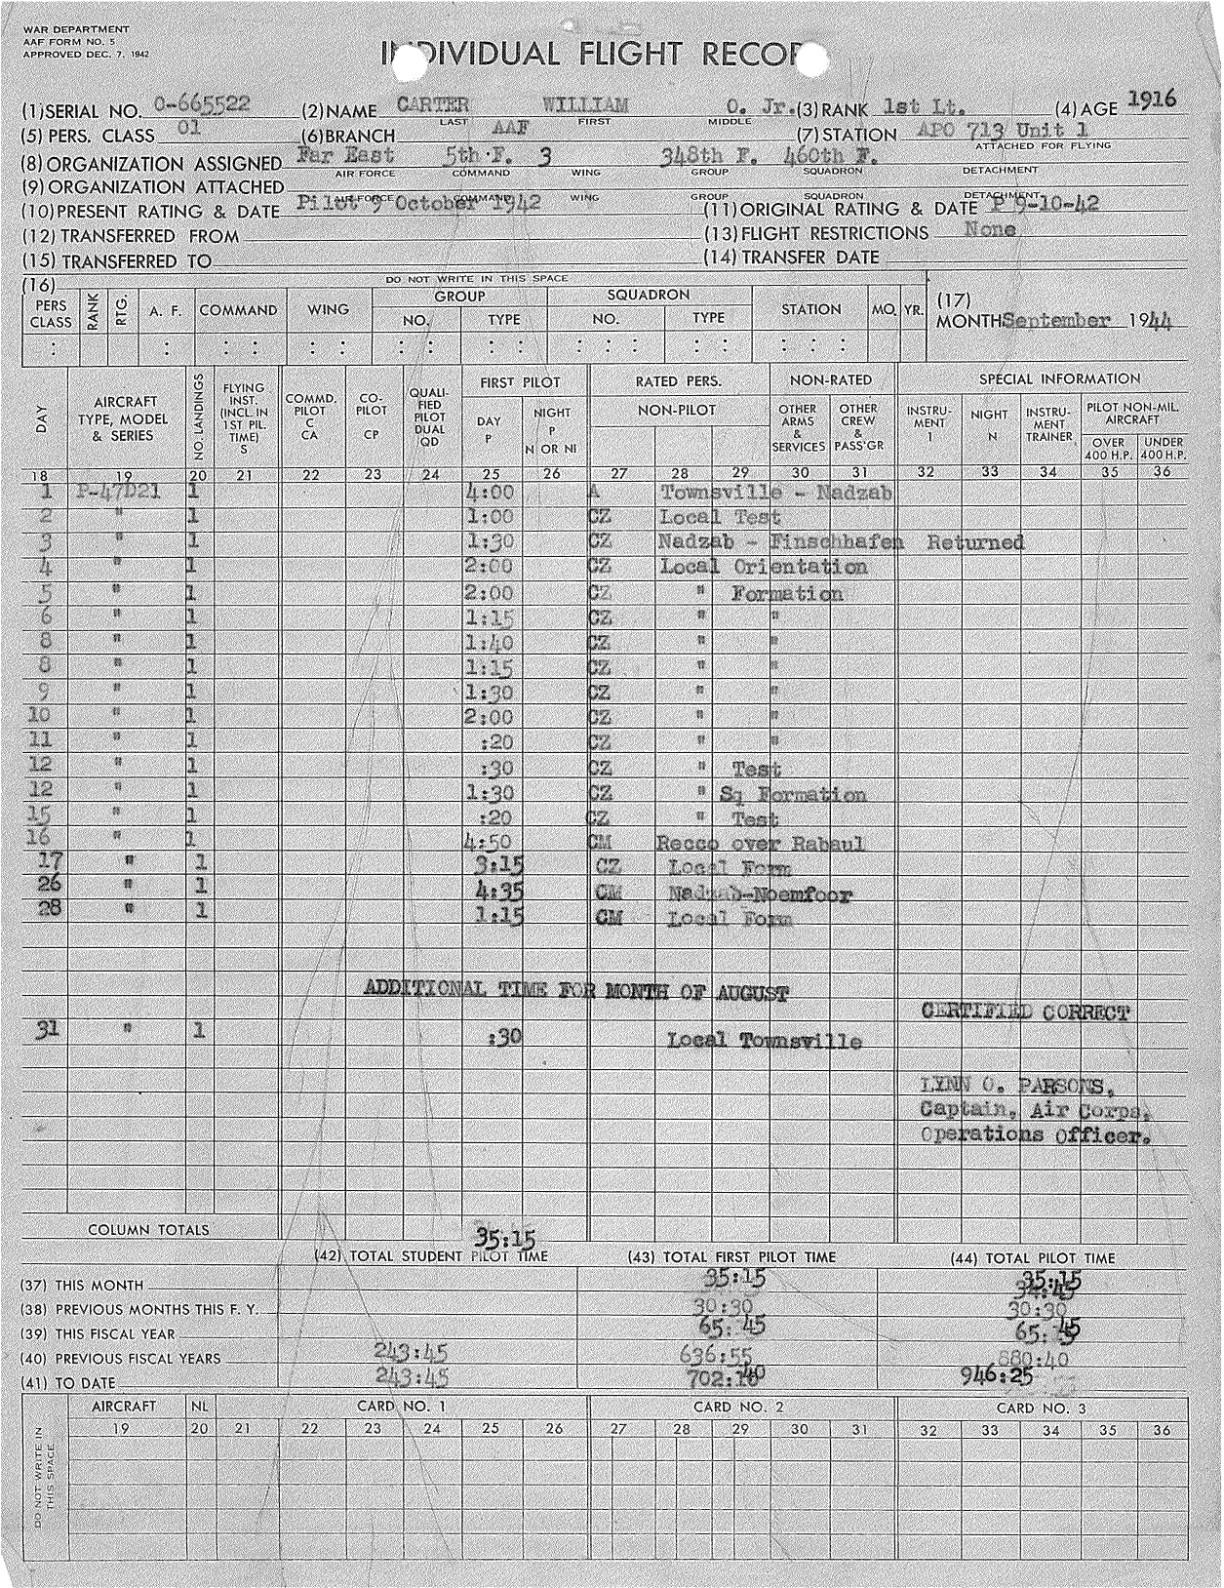 WAR DEPARTMENT
AAF FORM NO. 5
APPROVED DEC. 7, 1942
INDIVIDUAL FLIGHT RECORD
(1) SERIAL NO. O-665522 (2) NAME CARTER WILLIAM O. Jr. (3) RANK 1st Lt. (4) AGE 1916
LAST FIRST MIDDLE
(5) PERS. CLASS 01 (6) BRANCH AAF (7) STATION APO 713 Unit 1
ATTACHED FOR FLYING
(8) ORGANIZATION ASSIGNED Far East 5th F. 3 348th F. 460th F.
AIR FORCE COMMAND WING GROUP SQUADRON DETACHMENT
(9) ORGANIZATION ATTACHED
AIR FORCE COMMAND WING GROUP SQUADRON DETACHMENT
(10) PRESENT RATING & DATE Pilot 9 October 1942 (11) ORIGINAL RATING & DATE P 9-10-42
(12) TRANSFERRED FROM (13) FLIGHT RESTRICTIONS None
(15) TRANSFERRED TO (14) TRANSFER DATE
(16) DO NOT WRITE IN THIS SPACE
PERS CLASS RANK RTG. A. F. COMMAND WING GROUP NO. TYPE SQUADRON NO. TYPE STATION MO. YR. (17) MONTH September 1944
DAY AIRCRAFT TYPE, MODEL & SERIES NO. LANDINGS FLYING INST. (INCL. IN 1ST PIL. TIME) S COMMD. PILOT C CA CO-PILOT CP QUALI-FIED PILOT DUAL QD FIRST PILOT DAY P NIGHT P N OR NI RATED PERS. NON-PILOT NON-RATED OTHER ARMS & SERVICES OTHER CREW & PASS'GR SPECIAL INFORMATION INSTRU-MENT I NIGHT N INSTRU-MENT TRAINER PILOT NON-MIL. AIRCRAFT OVER 400 H.P. UNDER 400 H.P.
18 19 20 21 22 23 24 25 26 27 28 29 30 31 32 33 34 35 36
1 P-47D21 1 4:00 A Townsville - Nadzab
2 " 1 1:00 CZ Local Test
3 " 1 1:30 CZ Nadzab - Finschhafen Returned
4 " 1 2:00 CZ Local Orientation
5 " 1 2:00 CZ " Formation
6 " 1 1:15 CZ " "
8 " 1 1:40 CZ " "
8 " 1 1:15 CZ " "
9 " 1 1:30 CZ " "
10 " 1 2:00 CZ " "
11 " 1 :20 CZ " "
12 " 1 :30 CZ " Test
12 " 1 1:30 CZ " Sq Formation
15 " 1 :20 CZ " Test
16 " 1 4:50 CM Recco over Rabaul
17 " 1 3:15 CZ Local Form
26 " 1 4:35 CM Nadzab-Noemfoor
28 " 1 1:15 CM Local Form
ADDITIONAL TIME FOR MONTH OF AUGUST
CERTIFIED CORRECT
31 " 1 :30 Local Townsville
LYNN O. PARSONS,
Captain, Air Corps,
Operations Officer.
COLUMN TOTALS 35:15
(42) TOTAL STUDENT PILOT TIME (43) TOTAL FIRST PILOT TIME (44) TOTAL PILOT TIME
(37) THIS MONTH 35:15 35:15
(38) PREVIOUS MONTHS THIS F. Y. 30:30 30:30
(39) THIS FISCAL YEAR 65:45 65:45
(40) PREVIOUS FISCAL YEARS 243:45 636:55 880:40
(41) TO DATE 243:45 702:40 946:25
DO NOT WRITE IN THIS SPACE
AIRCRAFT NL CARD NO. 1 CARD NO. 2 CARD NO. 3
19 20 21 22 23 24 25 26 27 28 29 30 31 32 33 34 35 36